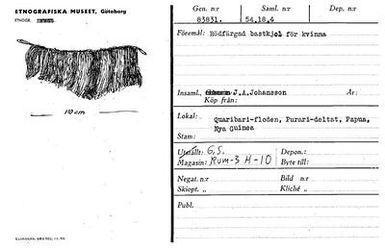 ETNOGRAFISKA MUSEET, Göteborg
10 cm
Gen. n:r
Saml. n:r
Dep. n:r
83831.
54.18.4
Föremål: Rödfärgad bastkjol för kvinna
Insaml. J.A.Johansson
År:
Köp från:
Lokal:
Quaribari-floden, Purari-deltat, Papua,
Nya guinea
Stam:
Utställt: G.S.
Depon.:
Magasin: Rum-3 H-10
Byte till:
Negat. n:r
Bild n:r
Skiopt. „
Kliché „
Publ.